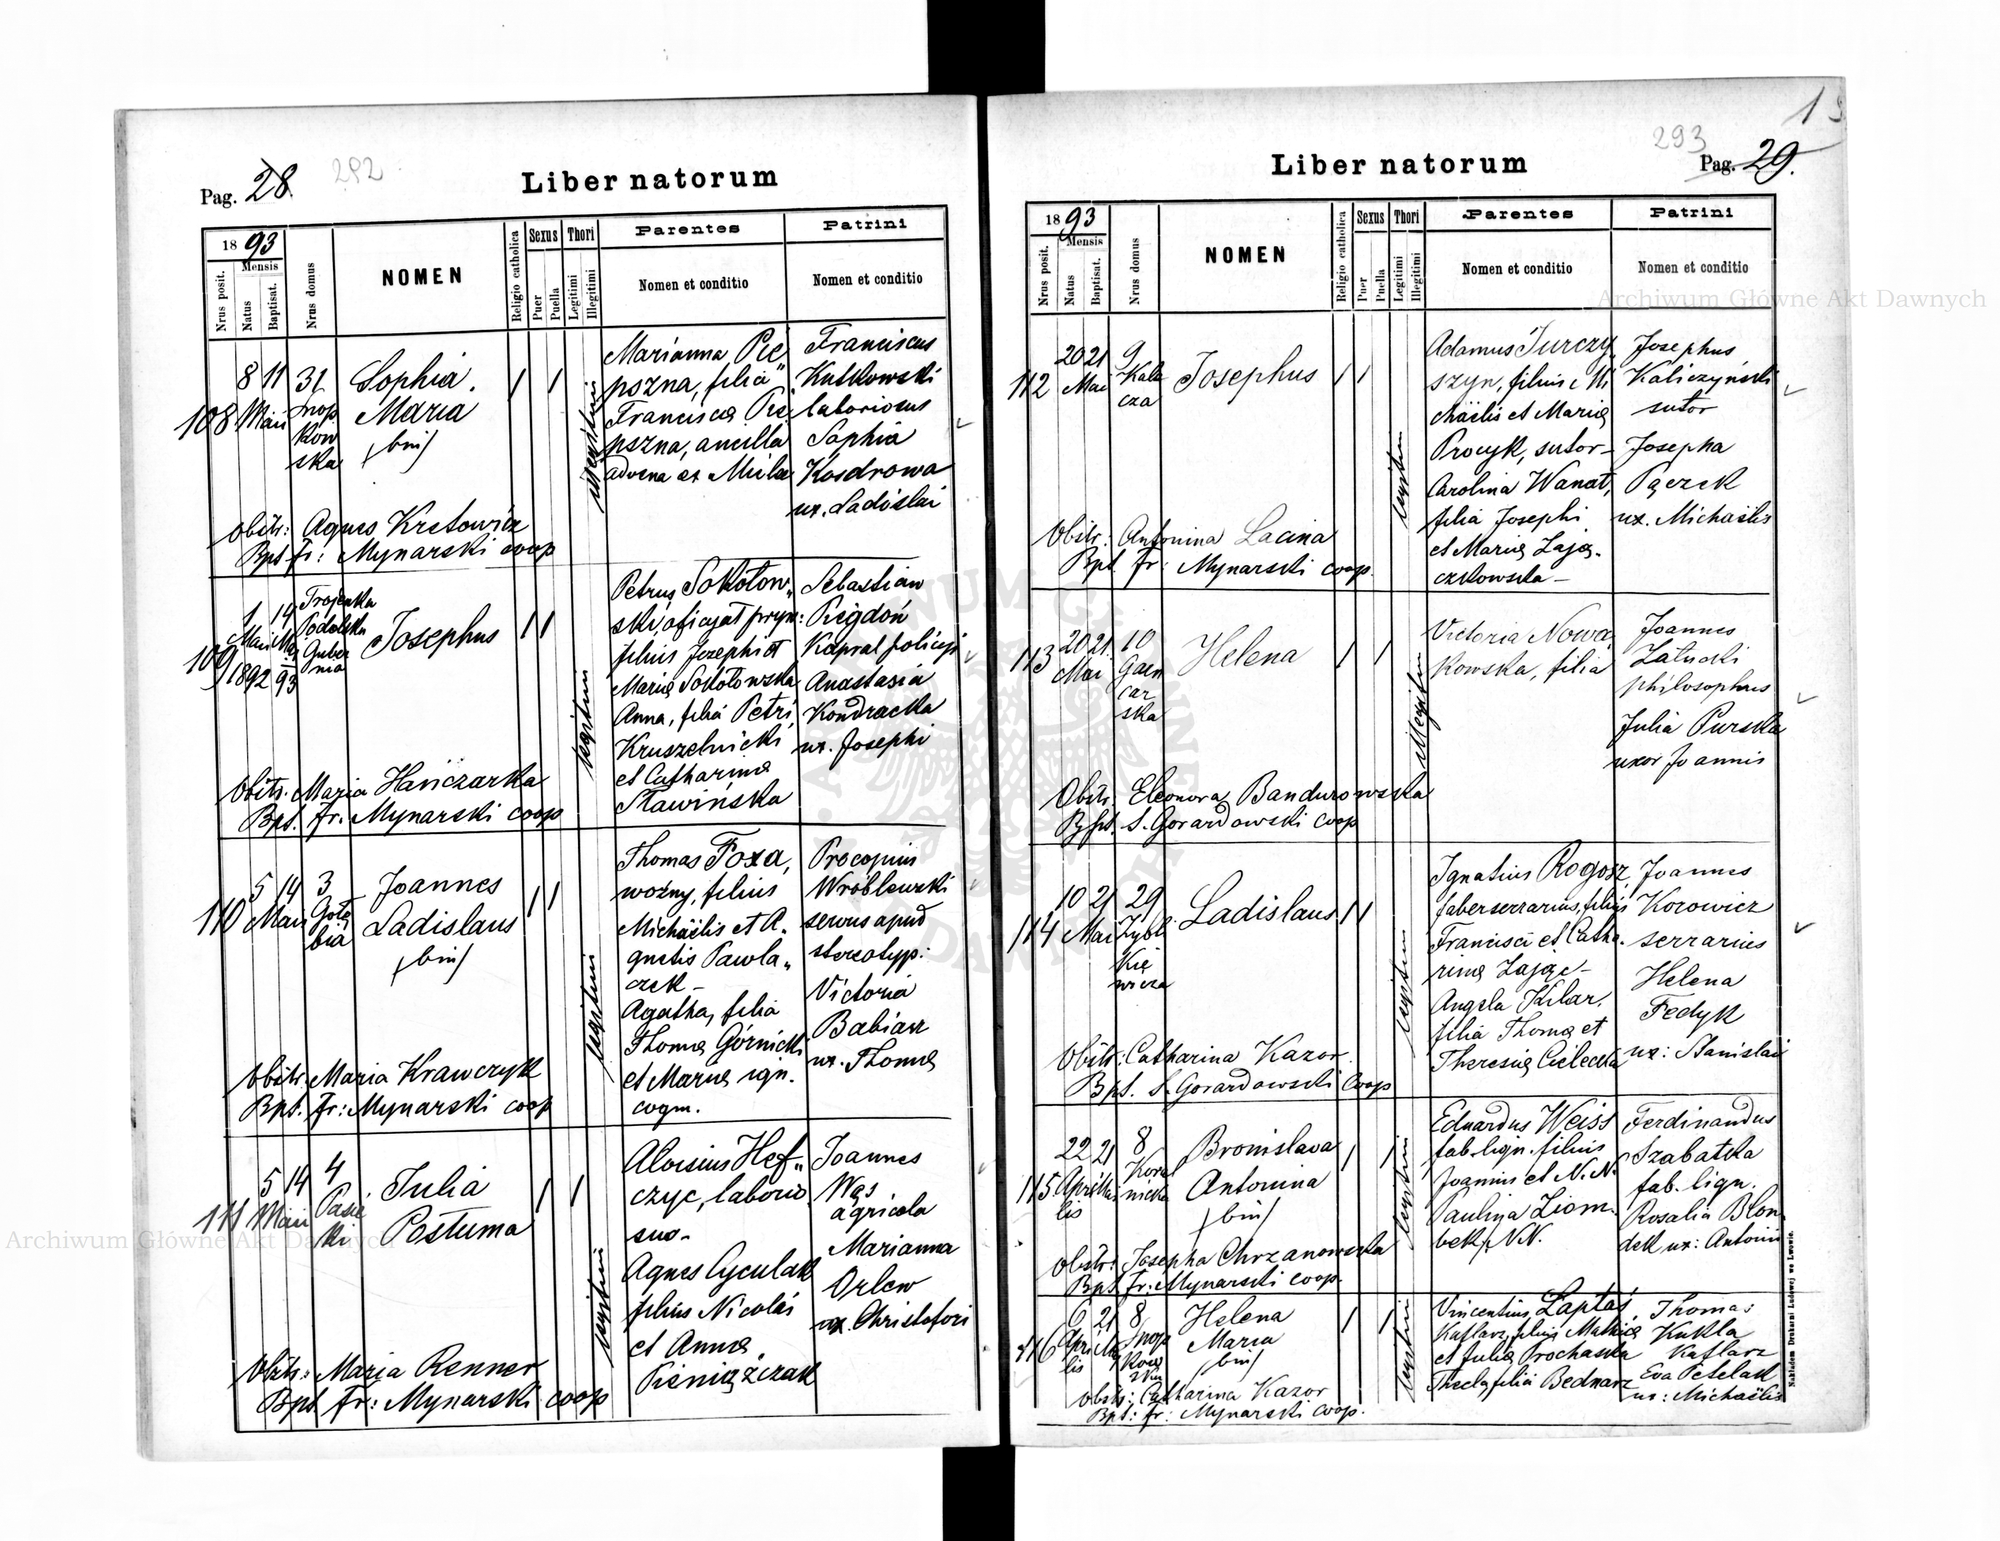 Pag. 28. 282
Liber natorum
1893
Mensis
Nrus posit.
Natus
Baptisat.
Nrus domus
NOMEN
Religio catholica
Sexus
Puer
Puella
Thori
Legitimi
Illegitimi
Parentes
Nomen et conditio
Patrini
Nomen et conditio
108
8 11
Maii
31
Snop
kow
ska
Sophia
Maria
(bin)
illegitimi
Marianna Pie
pszna, filia
Francisca Pie
pszna, ancilla
advena ex
Franciscus
Kutkowski
laboriosus
Sophia
Kosdrowa
ux. Ladislai
Obstr: Agnes Kretowicz
Bpt fr: Mynarski coop
109
1 14
Maii Maj
1892 93
Trojenka
Podolska
Guber
nia
Josephus
legitimi
Petrus Sokołow„
ski, oficyał pryw:
filius Josephi et
Mariae Sokołowska
Anna, filia Petri
Kruszelnicki
et Catharina
Sławińska
Sebastian
Pigdoń
Kapral policyi
Anastasia
Kondracka
ux. Josephi
Obstr. Maria Hańczarska
Bpt. fr. Mynarski coop
110
5 14
Maii
3
Gołę
bia
Joannes
Ladislaus
(bin)
legitimi
Thomas Foxa,
woźny, filius
Michäelis et A„
gnetis Pawla„
czek –
Agatha, filia
Thomae Górnicki
et Mariae ign.
cogm.
Procopius
Wróblewski
servus apud
stereotyp:
Victoria
Babiarz
ux. Thomae
Obstr. Maria Krawczyk
Bpt. fr: Mynarski coop
111
5 14
Maii
4
Pasie
ki
Julia
Postuma
legitimi
Aloisius Hef„
czyc, laborio
sus –
Agnes Cyculak
filius Nicolai
et Anna
Pieniążczak
Joannes
Wąs
agricola
Marianna
Orlew
ux. Christofori
Obstr: Maria Renner
Bpt fr: Mynarski coop
293
Pag. 29.
Liber natorum
1893
Mensis
Nrus posit.
Natus
Baptisat.
Nrus domus
NOMEN
Religio catholica
Sexus
Puer
Puella
Thori
Legitimi
Illegitimi
Parentes
Nomen et conditio
Patrini
Nomen et conditio
112
20 21
Mai
9
Kale
cza
Josephus
Adamus Jurczy„
szyn, filius Mi
chäelis et Mariae
Procyk, sutor –
Carolina Wanat,
filia Josephi
et Mariae Zają„
czkowska –
Josephus
Kaliczyński
sutor
Josepha
Pączek
ux. Michäelis
Obstr: Antonina Lacina
Bpt. fr: Mynarski coop.
113
20 21
Mai
10
Garn
car
ska
Helena
Victoria Nowa
kowska, filia
Joannes
Załucki
philosophus
Julia Purska
uxor Joannis
Obstr. Eleonora Bandurowska
Bpt. S. Gorazdowski coop
114
10 21
Mai
29
Zybli
kie
wicza
Ladislaus
Ignatius Rogosz,
faber serrarius, filius
Francisci et Catha„
rinae Zając –
Angela Kilar,
filia Thomae et
Theresiae Cielecka
Joannes
Korowicz
serrarius
Helena
Fedyk
ux: Stanislai
Obstr: Catharina Kazor.
Bpt. S. Gorazdowski Coop
115
22 21
Aprilis Mai
8
Koral
nicka
Bronislava
Antonina
(bin)
Eduardus Weiss
fab. lign. filius
Joannis et N. N.
Paulina Ziom„
bek, N.N.
Ferdinandus
Szabatka
fab. lign.
Rosalia Blon
dek ux: Antonii
Obstr: Josepha Chrzanowska
Bpt. fr: Mynarski coop.
116
6 21
Aprilis Mai
8
Snop
kow
ska
Helena
Maria
(bin)
Vincentius Łaptaś
Kaflarz, filius Mathiae
et Julia Prochaska
Thecla filia Bednarz
Thomas
Kukla
Kaflarz
Eva Petelak
ux: Michäelis
Obstr: Catharina Kazor
Bpt: fr: Mynarski coop.
Nakładem Drukarni Ludowej we Lwowie.
Archiwum Główne Akt Dawnych
Archiwum Główne Akt Dawnych